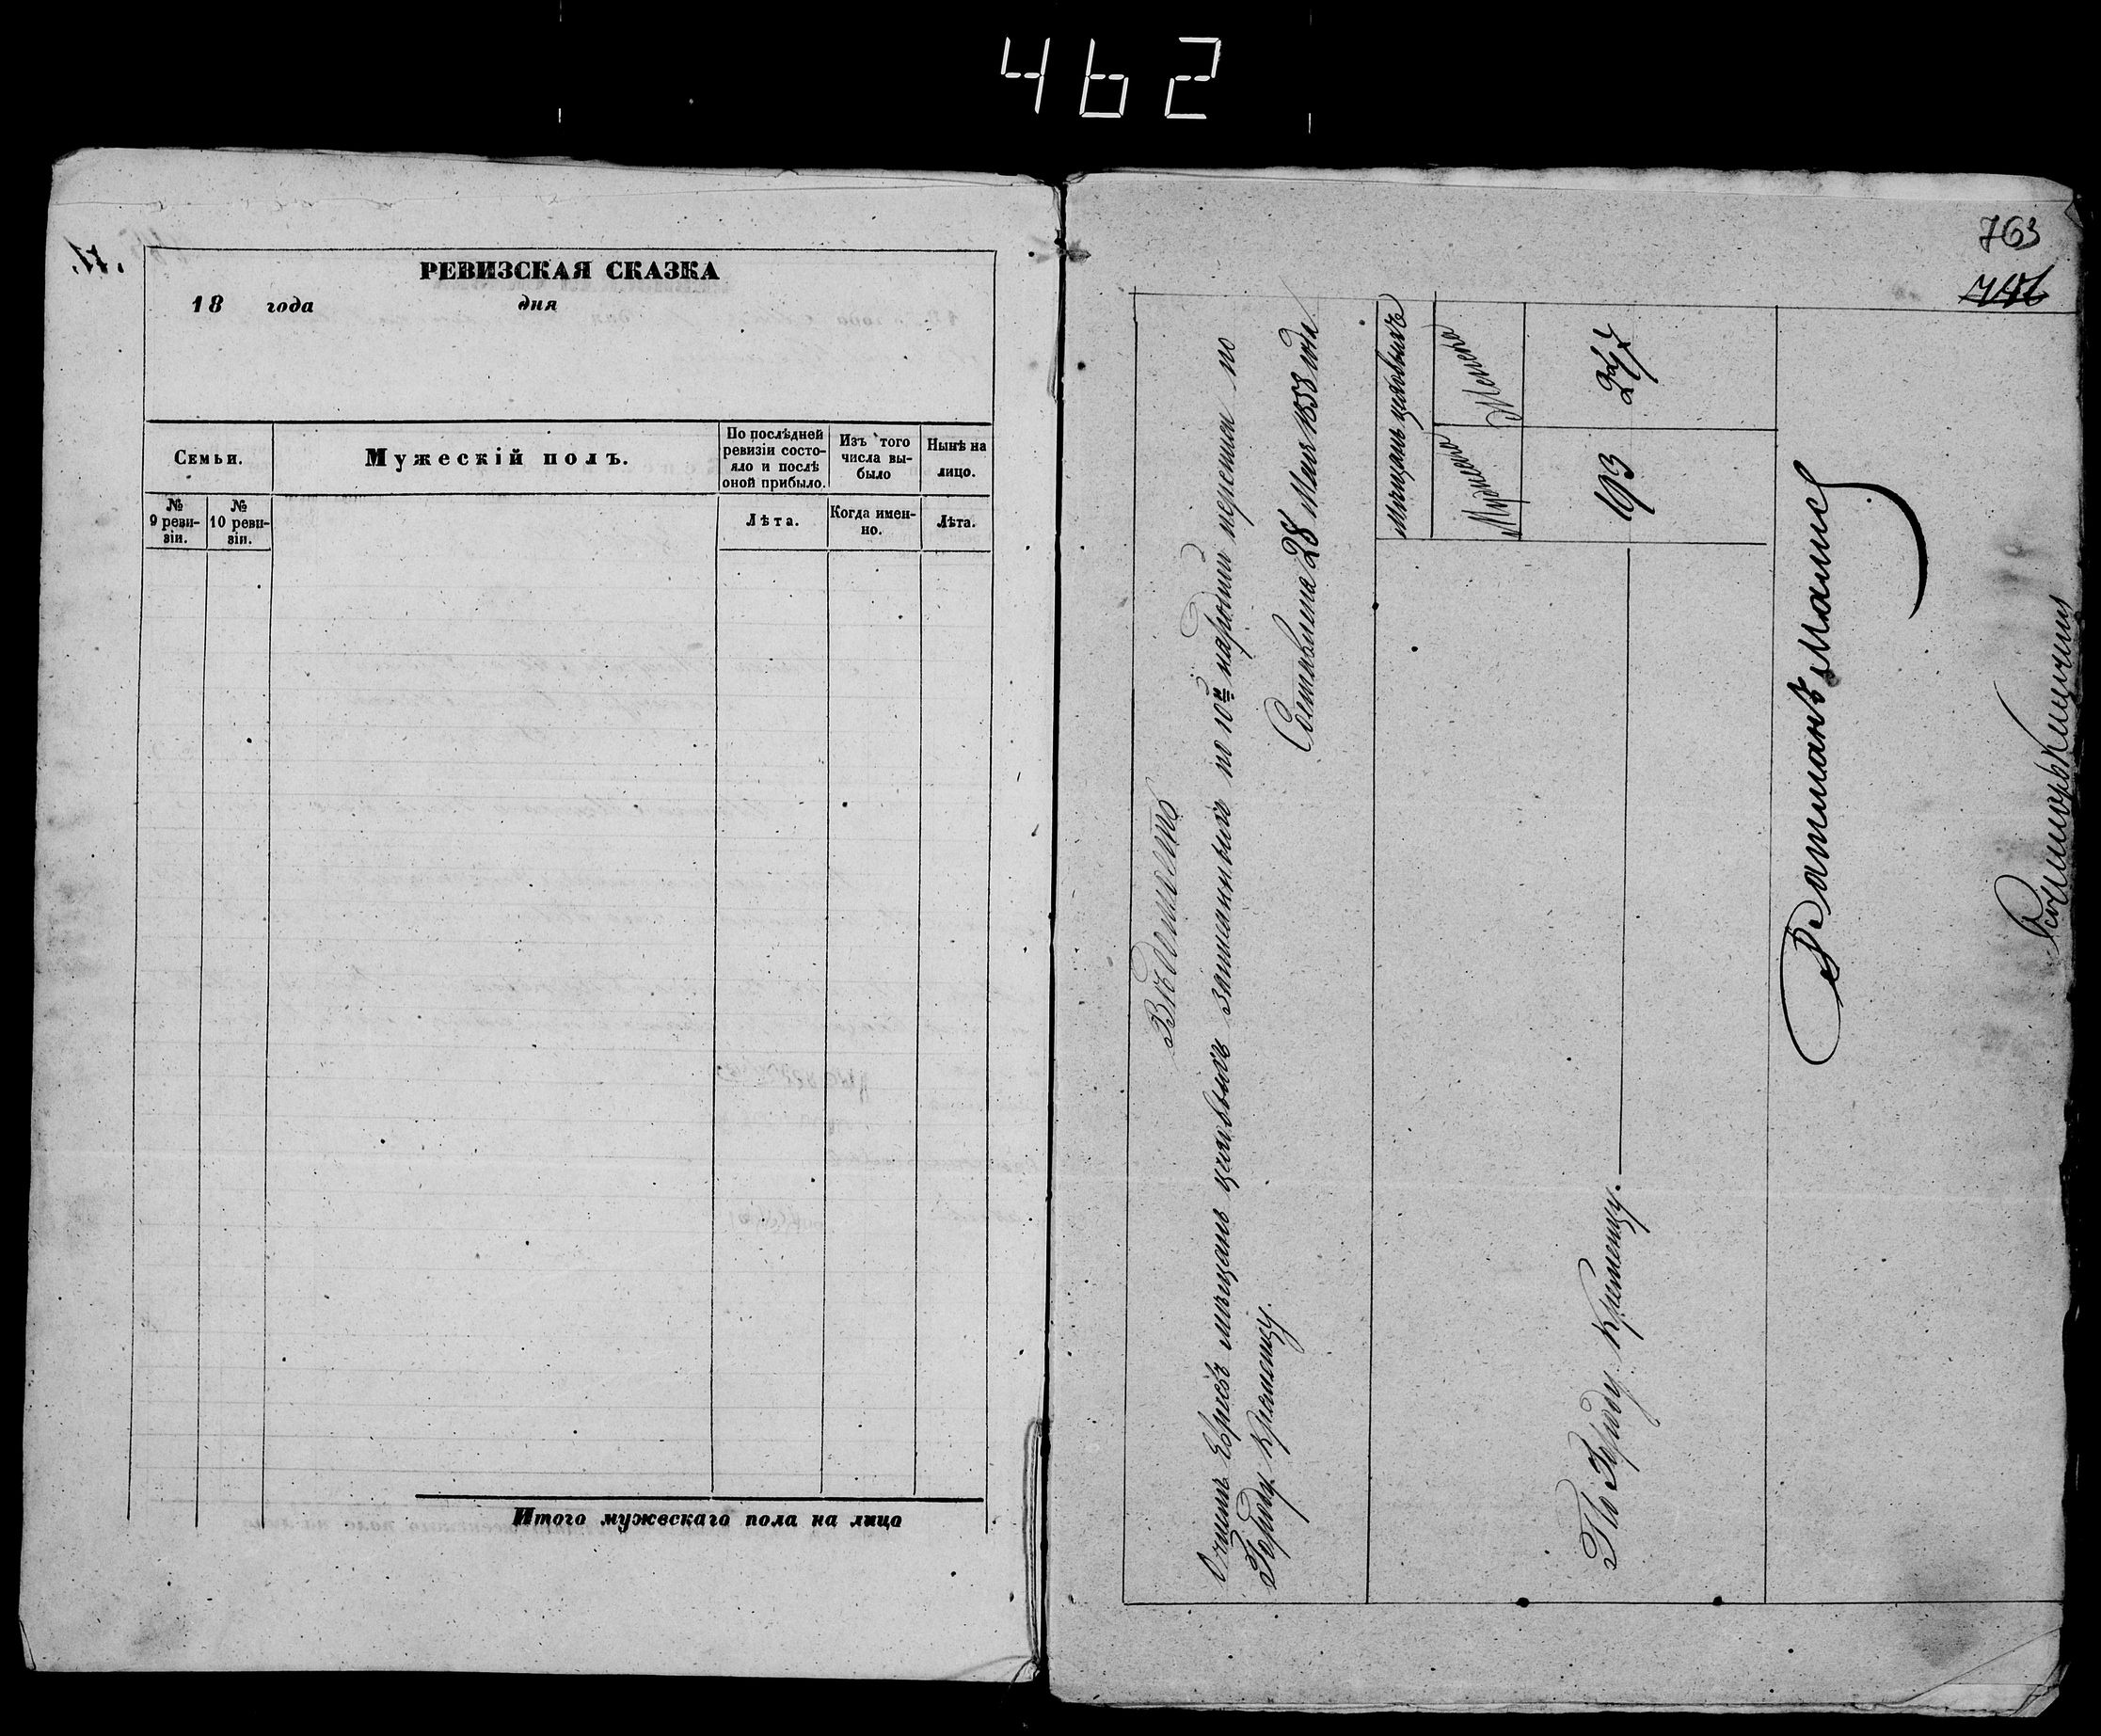 462
РЕВИЗСКАЯ СКАЗКА
18 года дня
Семьи.
Мужескій полъ.
По послѣдней
ревизіи состо-
яло и послѣ
оной прибыло.
Изъ того
числа вы-
было
Нынѣ на
лицо.
№
9 реви-
зіи.
№
10 реви-
зіи.
Лѣта.
Когда имен-
но.
Лѣта.
Итого мужескаго пола на лицо
763
746
Вѣдомость
О числѣ Евреевъ мѣщанъ цеховыхъ записанныхъ по 10й народной переписи по
Городу Кременцу.
Составлена 28 Мая 1858 года
Мѣщанъ цеховыхъ
Мужеска
Женска
По Городу Кременцу.
193
247
Ратманъ